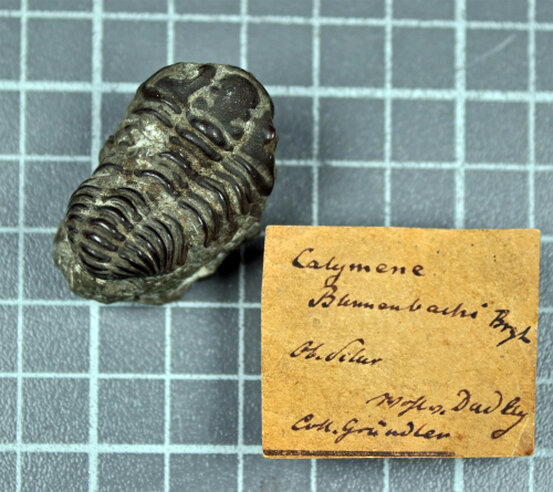 Calymene
Blumenbachi Brgt
Ob. Silur
v. Dudley
Coll. Gründler